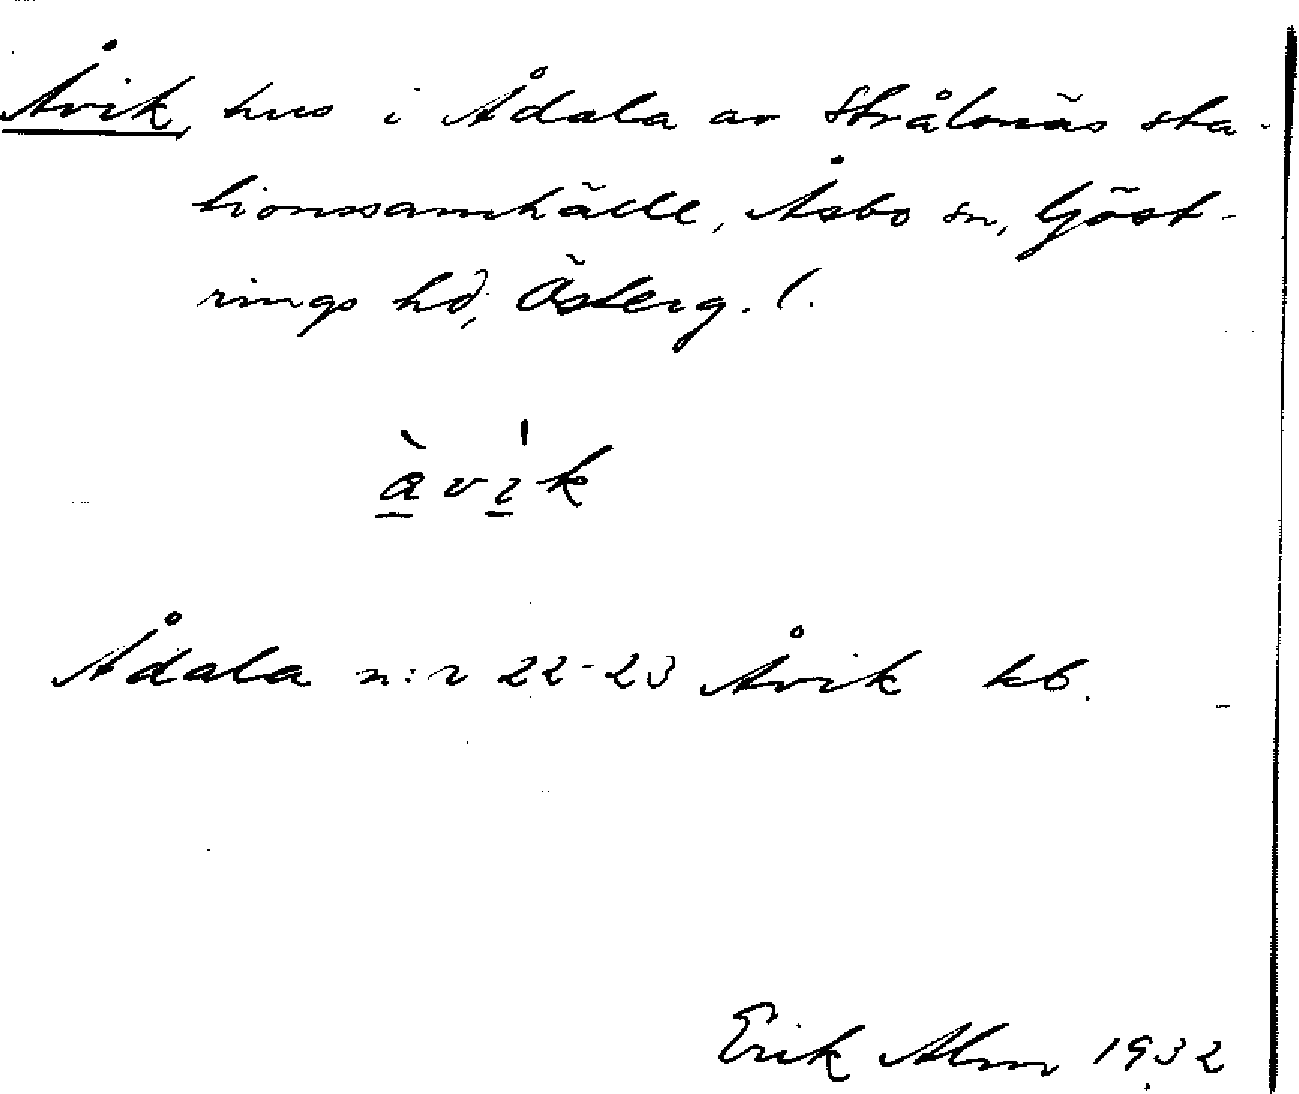 Åvik, hus i Ådala av Strålsnäs sta-
tionssamhälle, Åsbo sn, Göst-
rings hd, Österg. l.
àvik
Ådala n:r 22-23 Åvik kb.
Erik Alm 1932